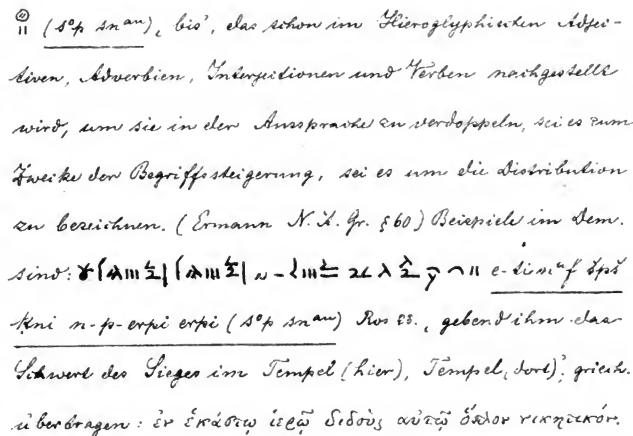 (sºp snᵃᵘ), bis', das schon im Hieroglyphischen Adjec-
tiven, Adverbien, Interjectionen und Verben nachgestellt
wird, um sie in der Aussprache zu verdoppeln, sei es zum
Zwecke der Begriffssteigerung, sei es um die Distribution
zu bezeichnen. (Ermann N. Ä. Gr. § 60) Beispiele im Dem.
sind: e-ti mᵃf špš
kni n-p-erpi erpi (sºp snᵃᵘ) Ros 23., gebend ihm das
Schwert des Sieges im Tempel (hier), Tempel (dort)', griech.
übertragen: ἐν ἑκάστῳ ἱερῷ διδοὺς αὐτῷ ὅπλον νικητικόν.